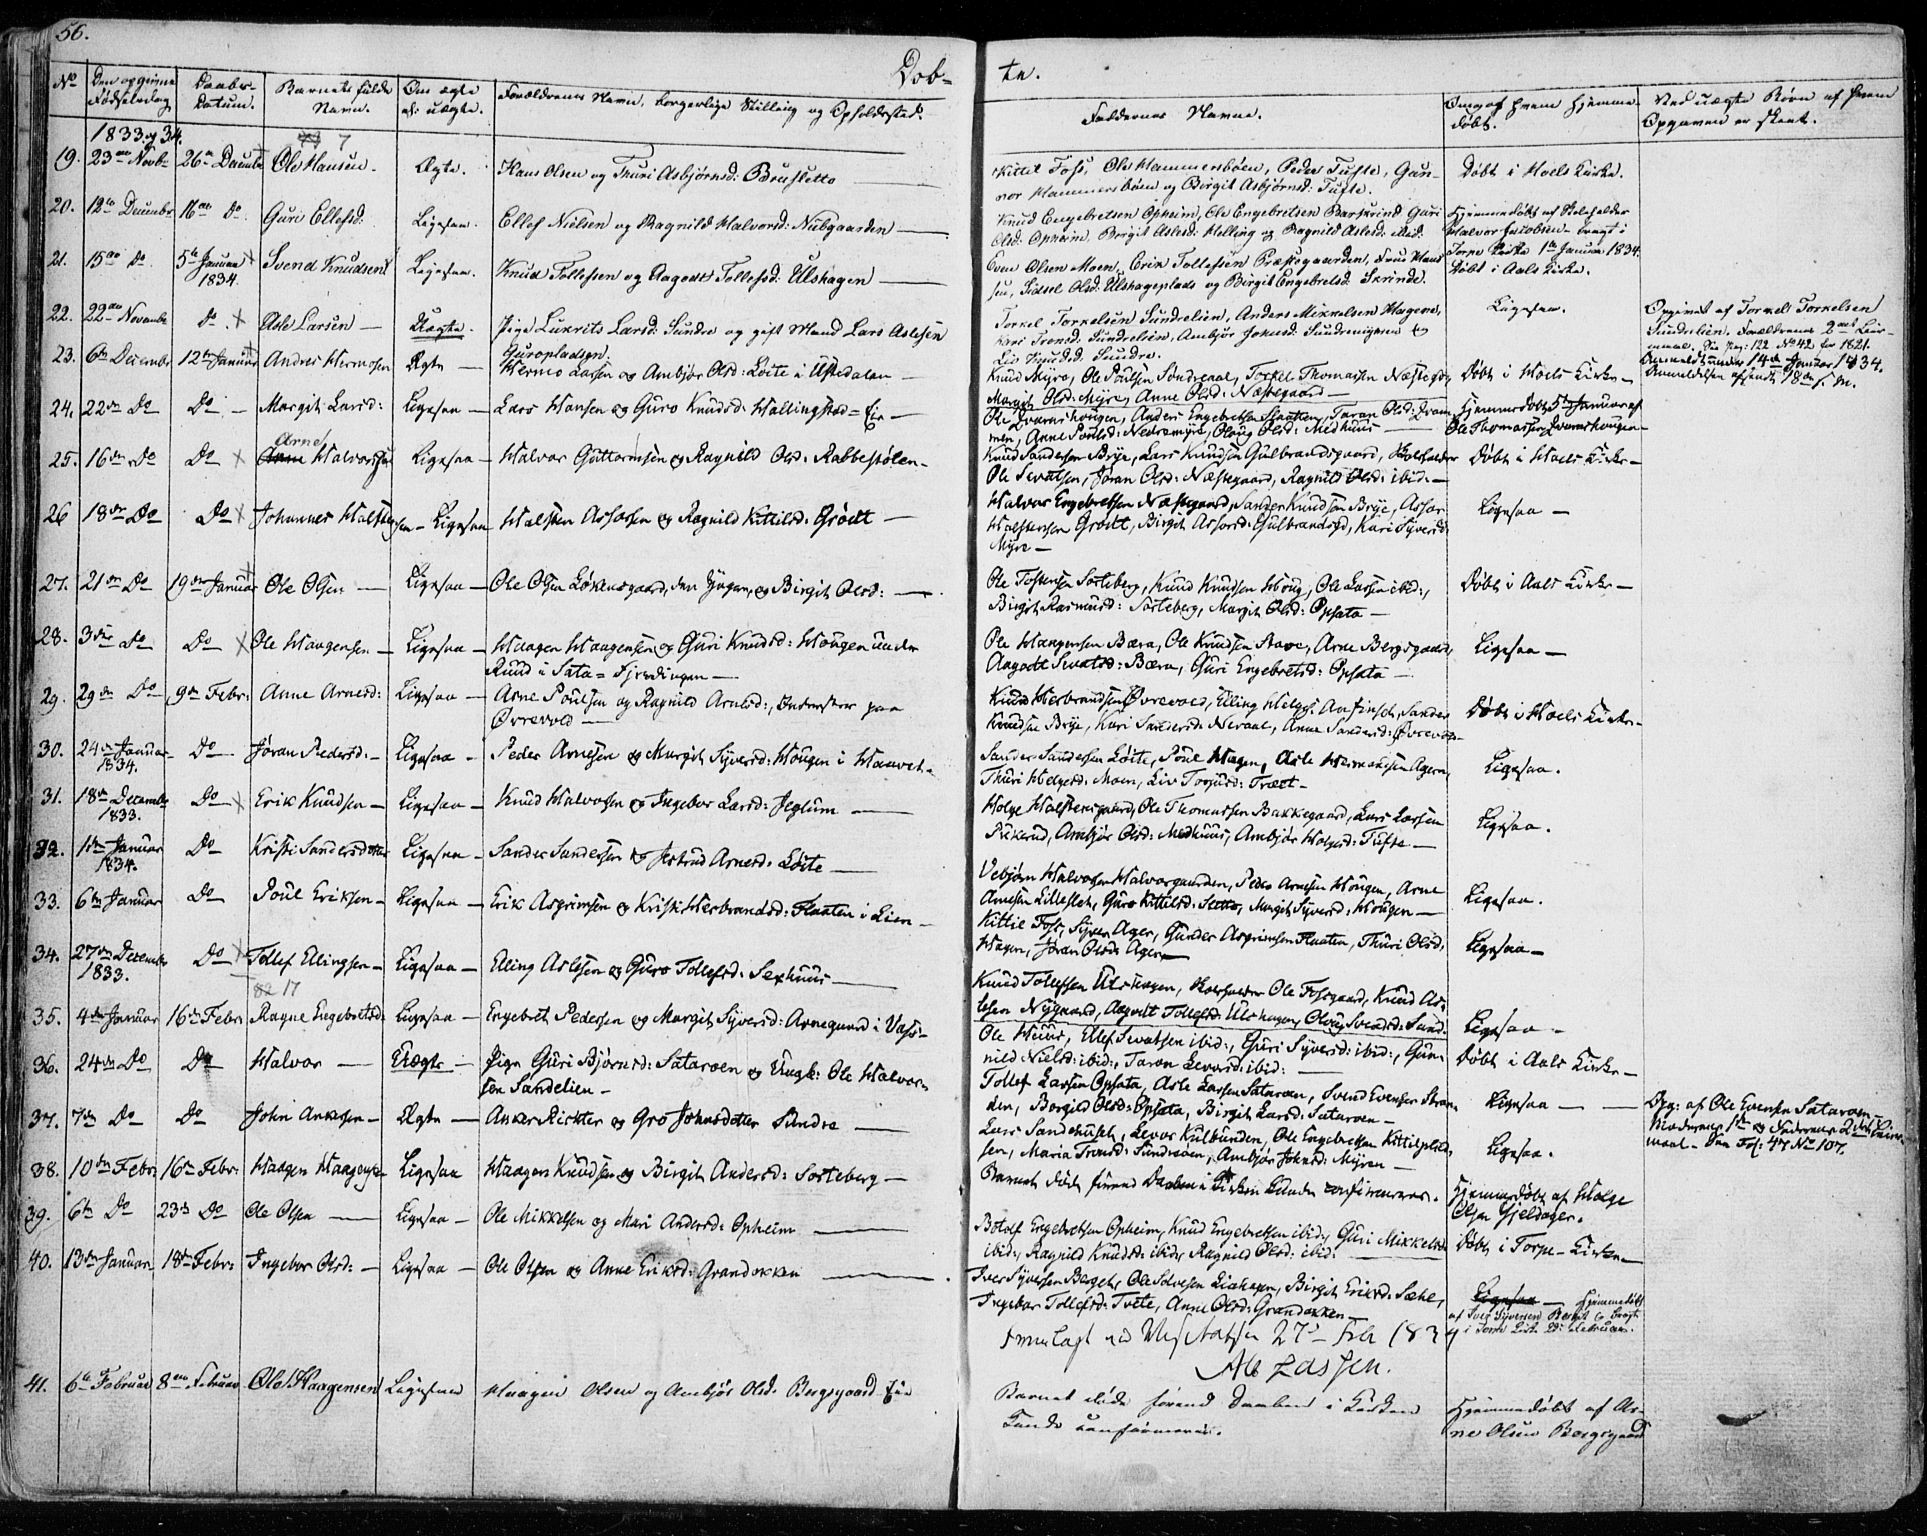 56.
Døb-
te.
No
Den opgivne Fødselsdag
Daabs-Datum.
Barnets fulde Navn.
Om ægte el: uægte.
Forældrenes Navn, borgerlige Stilling og Opholdssted.
Faddernes Navne.
Om og af hvem hjemme-døbt.
Ved uægte Børn af hvem Opgaven er skeet.
1833 og 34.
7
19. 23de Novb: 26de Decembr Ole Hansen. Ægte. Hans Olsen og Thuri Asbjørnsd: Brusletto
Kittel Foss, Ole Hammersbøen, Peder Tufte, Gun-
nor Hammersbøen og Birgit Asbjørnsd: Tufte.
Døbt i Hoels Kirke.
20. 12te Decembr 16de Do. Guri Ellefsd: Ligesaa. Ellef Nielsen og Ragnild Halvorsd: Nubgaarden
Knud Engebretsen Opheim, Ole Engebretsen Guri
Olsd: Opheim, Birgit Aslesd: Helling og Ragnild Aslesd: ibid:
Hjemmedøbt af Skoleholder
Halvor Jacobsen – bragt i
Torpe Kirke 1te Januar 1834.
21. 15de Do. 5te Januar 1834. Svend Knudsen Ligesaa. Knud Tollefsen og Aagodt Tollefsd: Ulshagen
Even Olsen Moen, Erik Tollefsen Præstegaarden,
Sidsel Olsd: Ulshagenplads og Birgit Engebretsd: Skrinde.
Døbt i Aals Kirke.
22. 22de Novembr Do. Asle Larsen Uægte. Pige Lukrits Larsd: Sundre og gift Mand Lars Aslesen
Guropladsen.
Torkel Torkelsen Sundrelien, Anders Mikkelsen Hagene,
Kari Tronsd: Sundrelien, Ambjør Johnsd: og
Liv Knudsd. Sundre.
Ligesaa.
Opgivet af Torkel Torkelsen
Sundrelien. Forældrenes 2det Leier-
maal. Sie pag: 122 No 42 for 1821.
Anmeldt under 14de Januar 1834.
Anmeldelsen afsendt 18de s. M.
23. 6te Decembr 12te Januar Andres Hermosen Ægte Hermo Larsen og Ambjør Olsd: Løite i Ustedalen
Knud Myro, Ole Poulsen Sondreaal, Torkel Thomassen Næstegd,
Margit Olsd: Myre, Anne Olsd: Næstegaard
Døbt i Hoels Kirke
24. 22de Do Do Margit Larsd: Ligesaa Lars Hansen og Guro Knudsd: Hallingstad-Eie
Ole Dvæmshougen, Anders Engebretsen Slaatten, Taran Olsd: Dram-
men, Anne Poulsd: Nedremyre, Oloug Olsd: Medhuus
Hjemmedøbt 5te Januar af
Ole Thomassen Dvæmshougen
25. 16de Do Do Arne Halvorsen Ligesaa Halvor Guttormsen og Ragnild Olsd: Rabbestølen
Knud Sandersen Brye, Lars Knudsen Gulbrandsgaard, Skoleholder
Ole Sevatsen, Jøran Olsd: Næstegaard, Ragnild Olsd: ibid:
Døbt i Hoels Kirke
26 18de Do Do Johannes Halstensen Ligesaa Halsten Assorsen og Ragnild Kittilsd: Grødt
Halvor Engebretsen Næstegaard, Sander Knudsen Brye, Assor
Halstensen Grødt, Birgit Assorsd: Gulbrandsgd, Kari Syversd:
Myre
Ligesaa
27. 21de Do 19de Januar Ole Olsen Ligesaa Ole Olsen Løkensgaard, den Yngre, og Birgit Olsd:
Ole Tostensen Sorteberg, Knud Knudsen Houg, Ole Larsen ibid:,
Birgit Rasmusd: Sorteberg, Margit Olsd: Opsata
Døbt i Aals Kirke
28. 3die Do Do Ole Haagensen Ligesaa Haagen Haagensen og Guri Knudsd: Hougen under
Ruud i Sata-Fjerdingen
Ole Haagensen Bæra, Ole Knudsen Aave, Arne Bergsgaard,
Aagodt Sevatsd: Bæra, Guri Engebretsd: Opsata
Ligesaa
29. 29de Do 9de Febr: Anne Arnesd: Ligesaa Arne Poulsen og Ragnild Arnesd:, Inderster paa
Ovrevold
Knud Herbrandsen Ovrevold, Elling Helgs. Aufinset, Sander
Knudsen Brye, Kari Sandersd: Neraal, Anne Sandersd: Ovrevold
Døbt i Hoels Kirke
30. 24de Januar 1834. Do Jøran Pedersd: Ligesaa Peder Arnesen og Margit Syversd: Hougen i Haavet
Sander Sandersen Løite, Poul Hagen, Asle Hermansen Ageren,
Thuri Helgesd: Moen, Liv Torsusd: Træet
Ligesaa.
31. 18de Decembr 1833. Do Erik Knudsen Ligesaa Knud Halvorsen og Ingebor Larsd: Jeglum
Helge Halstensgaard, Ole Thomassen Bakkegaard, Lars Larsen
Pukerud, Ambjør Olsd: Medhuus, Ambjør Helgesd: Tufte
Ligesaa.
32. 1ste Januar 1834. Do Kristi Sandersdotter Ligesaa Sander Sandersen og Jertrud Arnesd: Løite
Vebjørn Halvorsen Halvorsgaarden, Peder Arnesen Hougen, Arne
Arnesen Lilleslet, Guro Kittilsd: Sletto, Margit Syversd: Hougen
Ligesaa.
33. 6te Januar Do Poul Eriksen Ligesaa Erik Asgrimsen og Kristi Herbrandsd: Flaaten i Lien
Kittil Foss, Syver Ager, Gunder Asgrimsen Flaaten, Thuri Olsd:
Hagen, Jøran Olsd: Ageren
Ligesaa
34. 27de Decembr 1833. Do Tollef Ellingsen Ligesaa Elling Aslesen og Guro Tollefsd: Sexhuus
Knud Tollefsen Ulshagen, Skoleholder Ole Fossgaard, Knud As-
lesen Nygaard, Aagodt Tollefsd: Ulshagen, Oloug Svensd: Sund-
Ligesaa
17
35. 4de Januar 16de Febr: Ragne Engebretsd: Ligesaa Engebret Pedersen og Margit Syversd: Arnegaard i Vass-
Ole Huus, Ellef Sevatsen ibid:, Guri Syversd: ibid:, Gun-
nild Nielsd: ibid:, Taran Levorsd: ibid:
Døbt i Aals Kirke
36. 24de Do Do Halvor Uægte Pige Guri Bjørnsd: Sataroen og Ungk: Ole Halvor-
sen Sandelien
Tollef Larsen Opsata, Asle Larsen Sataroen, Svend Evensen Stran-
den, Borgild Olsd: Opsata, Birgit Larsd: Sataroen
Ligesaa
Opg: af Ole Evensen Sataroen
Moderens 1ste og Faderens 2det Leier-
maal. See Fol: 47 No 107.
37. 7de Do Do John Ankersen Ægte Anker Rickter og Gro Johnsdotter Sundre
Lars Sandehuset, Levor Kulbunden, Ole Engebretsen Kittilsplad-
sen, Maria Tronsd: Sundroen, Ambjør Johnsd: Myren
Ligesaa.
38. 10de Febr: 16de Febr: Haagen Haagensen Ligesaa Haagen Knudsen og Birgit Andersd: Sorteberg
Barnet døde førend Daaben i Kirken kunde confirmeres.
Hjemmedøbt af Helge
Olsen Gjeldager.
39. 6te Do 23de Do Ole Olsen Ligesaa Ole Mikkelsen og Mari Andersd: Opheim
Botolf Engebretsen Opheim, Knud Engebretsen ibid:, Guri Mikkelsd:
ibid:, Ragnild Knudsd: ibid:, Ragnild Olsd: ibid:
Døbt i Torpe-Kirke
40. 13de Januar 18de Febr: Ingebor Olsd: Ligesaa Ole Olsen og Anne Eriksd: Grandokken
Iver Syversen Berget, Ole Solvesen Liahagen, Birgit Eriksd: Sæhe,
Ingebor Tollefsd: Tvete, Anne Olsd: Grandokken
Ligesaa Hjemmedøbt
af Iver Syversen Berget og bragt
i Torpe Kirke Februar.
Fremlagt ved Visitatsen 27de Feb 1834
41. 6te Februar 8de Februar Ole Haagensen Ligesaa Haagen Olsen og Ambjør Olsd. Bergsgaard Eie
Barnet døde førend Daaben i Kirken
kunde confirmeres.
Hjemmedøbt af Ar-
ne Olsen Bergsgaard